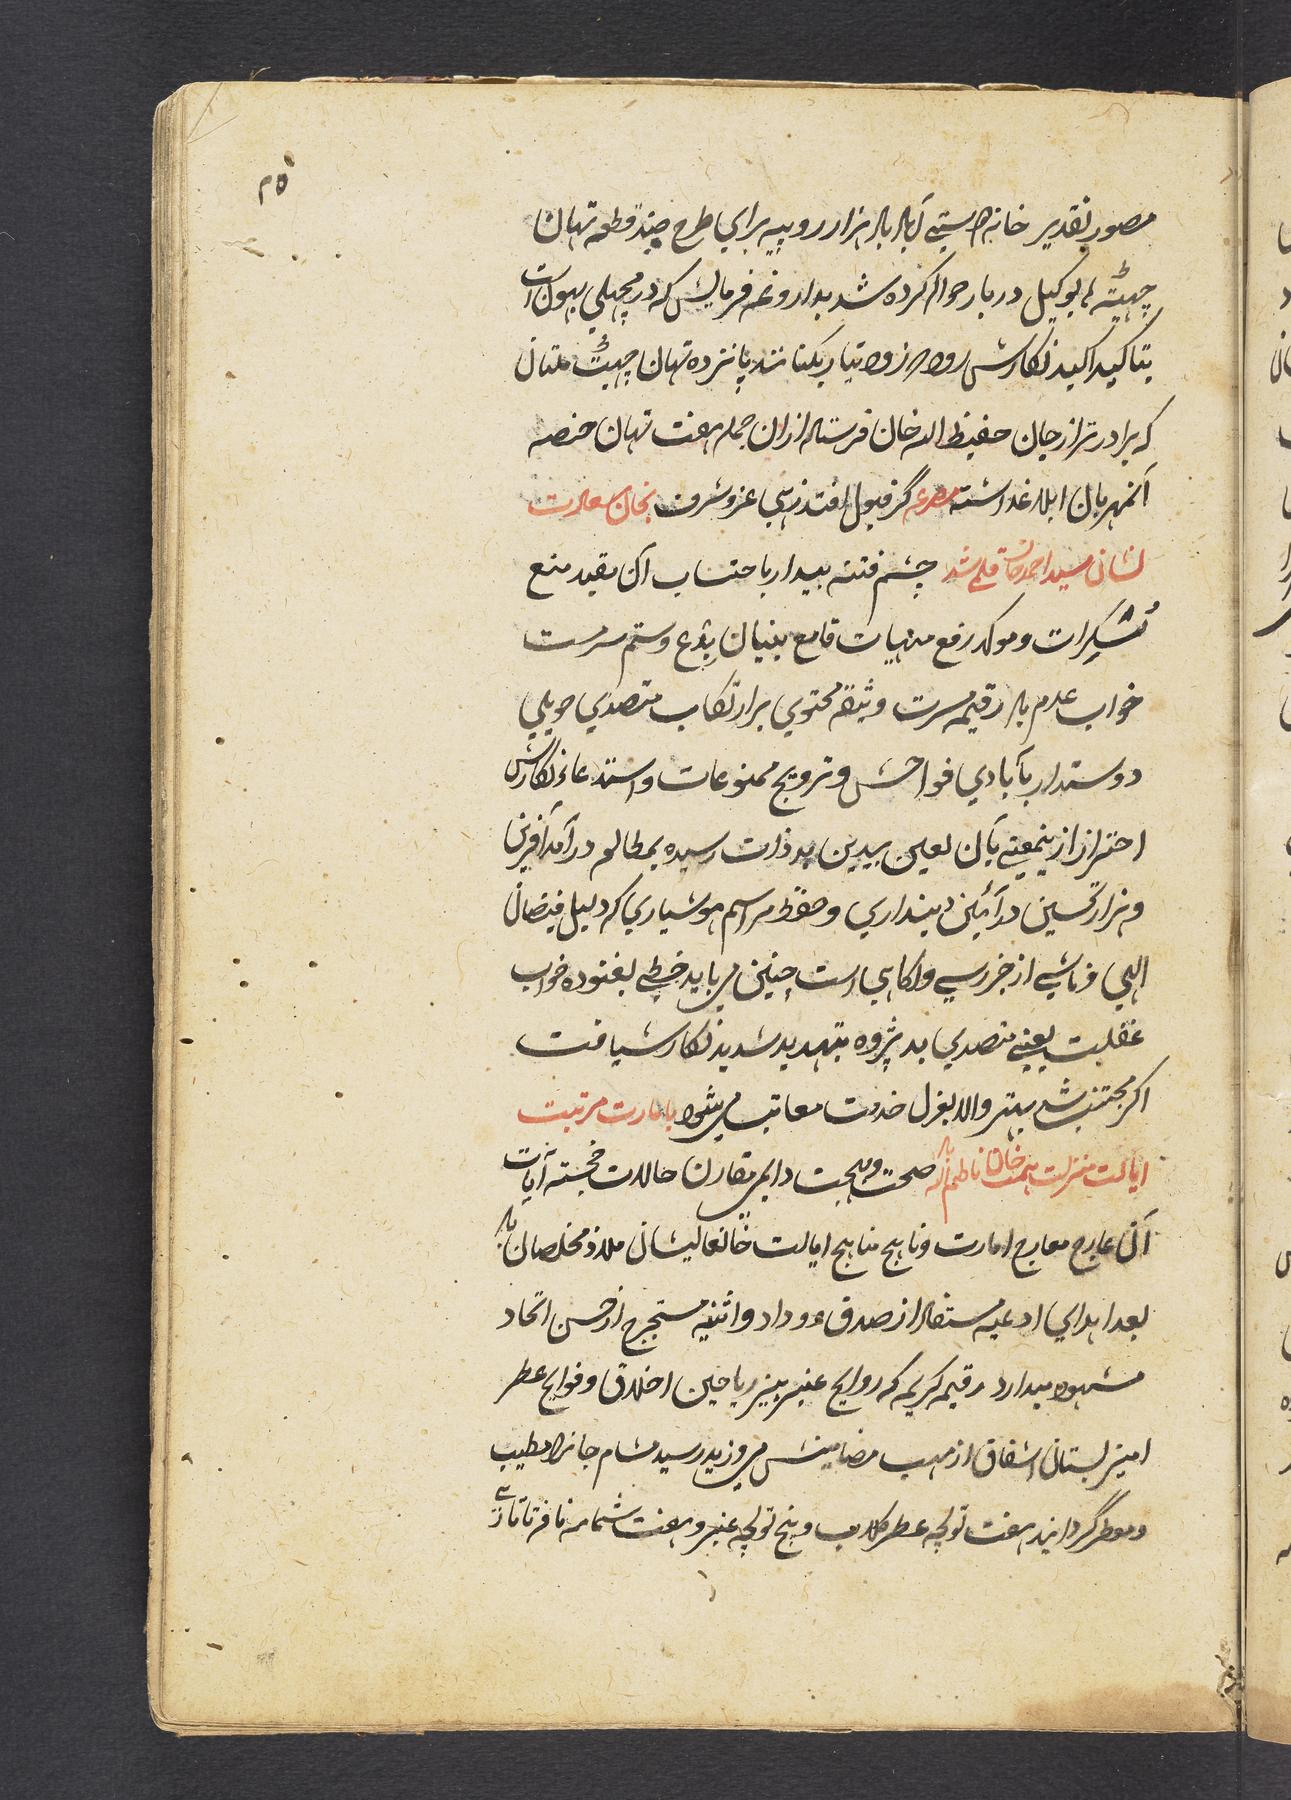 ۲۵
مصور تقدیر خانه هستی آباد باد هزار روپیه برای طرح چند قطعه تهان
چهینٹ بوکیل دربار حواله کرده شد بداروغه فرمایش که در مچهلی پهون است
بتاکید اکید نگارش رود زود تیار بکنانند پانزده تهان چهینٹ ملتان
که برادر تر از جان حفیظ الله خان فرستاده ازان جمله هفت تهان حصه
آنمهربان ابلاغداشته مصرعه گر قبول افتد زهی عز و شرف بخان سعادت
نشان سید احمد خان قلمی شد چشم فتنه بیدار باحتساب آن مقید منع
مسکرات و موکد رفع منهیات قامع بنیان بدع و ستم سرمست
خواب عدم باد رقیمه مسرت وثیقه محتوی بر ارتکاب متصدی حویلی
دوستدار بآبادی فواحش و ترویج ممنوعات و استدعاء نگارش
احتراز ازینمعنی بآن لعین بیدین بد ذات رسیده بمطالعه درآمد آفرین
و هزار تحسین در آئین دینداری و حفظ مراسم هوشیاری که دلیل فیضان
الهی و ناشی از خبررسی و آگاهی است چنین می باید خطی بغنوده خواب
غفلت یعنی متصدی بد پژوه بتهدید شدید نگارش یافت
اگر مجتنب شد بهتر والا بعزل خدمت معاتب میشود بامارت مرتبت
ایالت منزلت همت خان ناظم اله باد صحت و بهجت دایمی مقارن حالات خجسته آیات
آن عارج معارج امارت و ناهج مناهج ایالت خانعالیشان ملاذ مخلصان باد
بعد اهدای ادعیه مستفاد از صدق وداد و اثنیه مستخرج از حسن اتحاد
مشهود میدارد رقیمه کریمه که روایح عنبربیز ریاحین اخلاق و فوایح عطر
امیز بستان اشفاق از مهب مضامینش می وزید رسید مشام جانرا مطیب
و معطر گردانید هفت تولچه عطر گلاب و پنج تولچه عنبر و هفت شمامه نافه تاتاری